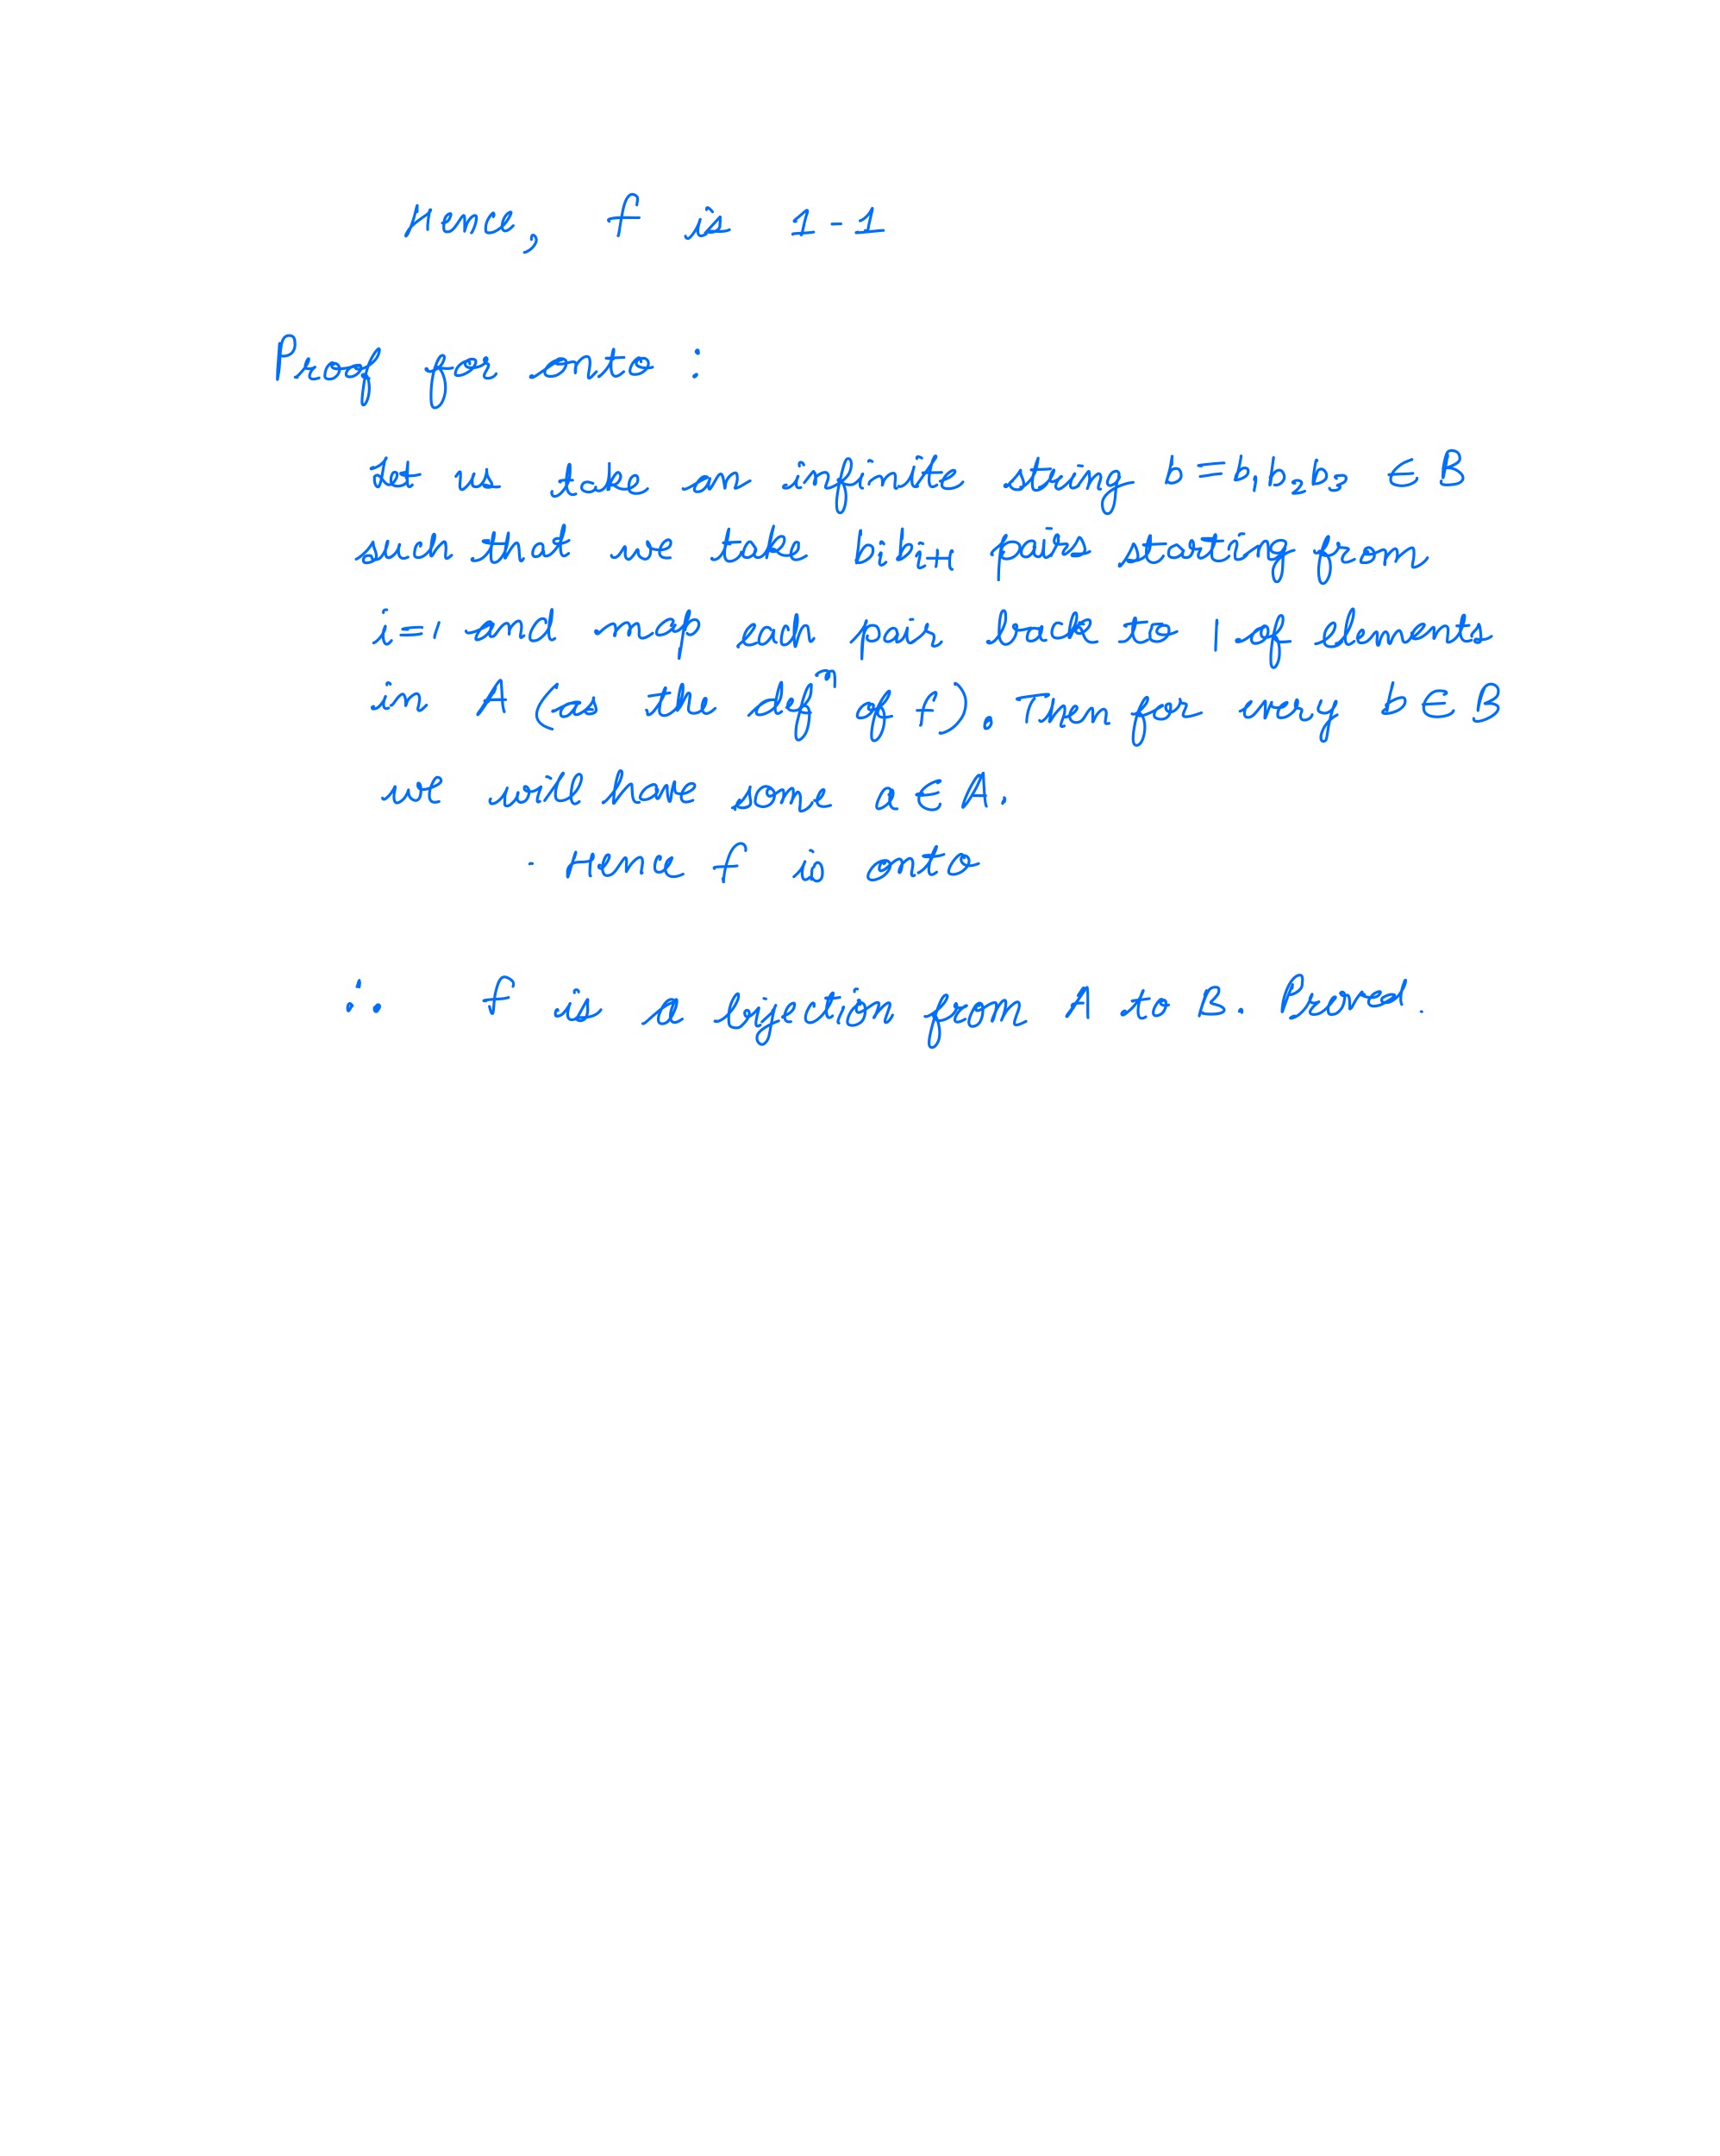 Hence, f is 1-1
Proof for onto :
Let us take an infinite string b = b₁b₂b₃ ∈ B
such that we take bᵢbᵢ₊₁ pairs starting from
i=1 and map each pair back to 1 of elements
in A (as the defⁿ of f). Then for every b ∈ B
we will have some a ∈ A.
. Hence f is onto
∴ f is a bijection from A to B. Proved.